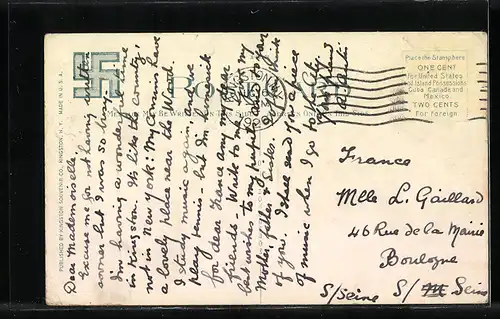 PUBLISHED BY KINGSTON SOUVENIR CO., KINGSTON, N. Y. MADE IN U. S. A.
Place the Stamp here
ONE CENT
for United States
and Island Possessions
Cuba Canada and
Mexico
TWO CENTS
for Foreign
Dear Mademoiselle
Excuse me for not having written
sooner but I was so busy.
I'm having a wonderful time
in Kingston. It's like the country,
not in New York: My cousins have
a lovely place near the Wood.
I study music again, and we
play tennis - but I'm homesick
for dear France and my dear
friends - Write to me. Give my
best wishes to my pupils, also to your
Mother, father & Sister.
of you. I shall send you a piece
of music when I go to
France
Mlle L. Gaillard
46 Rue de la Mairie
Boulogne
S/Seine S/ Seine